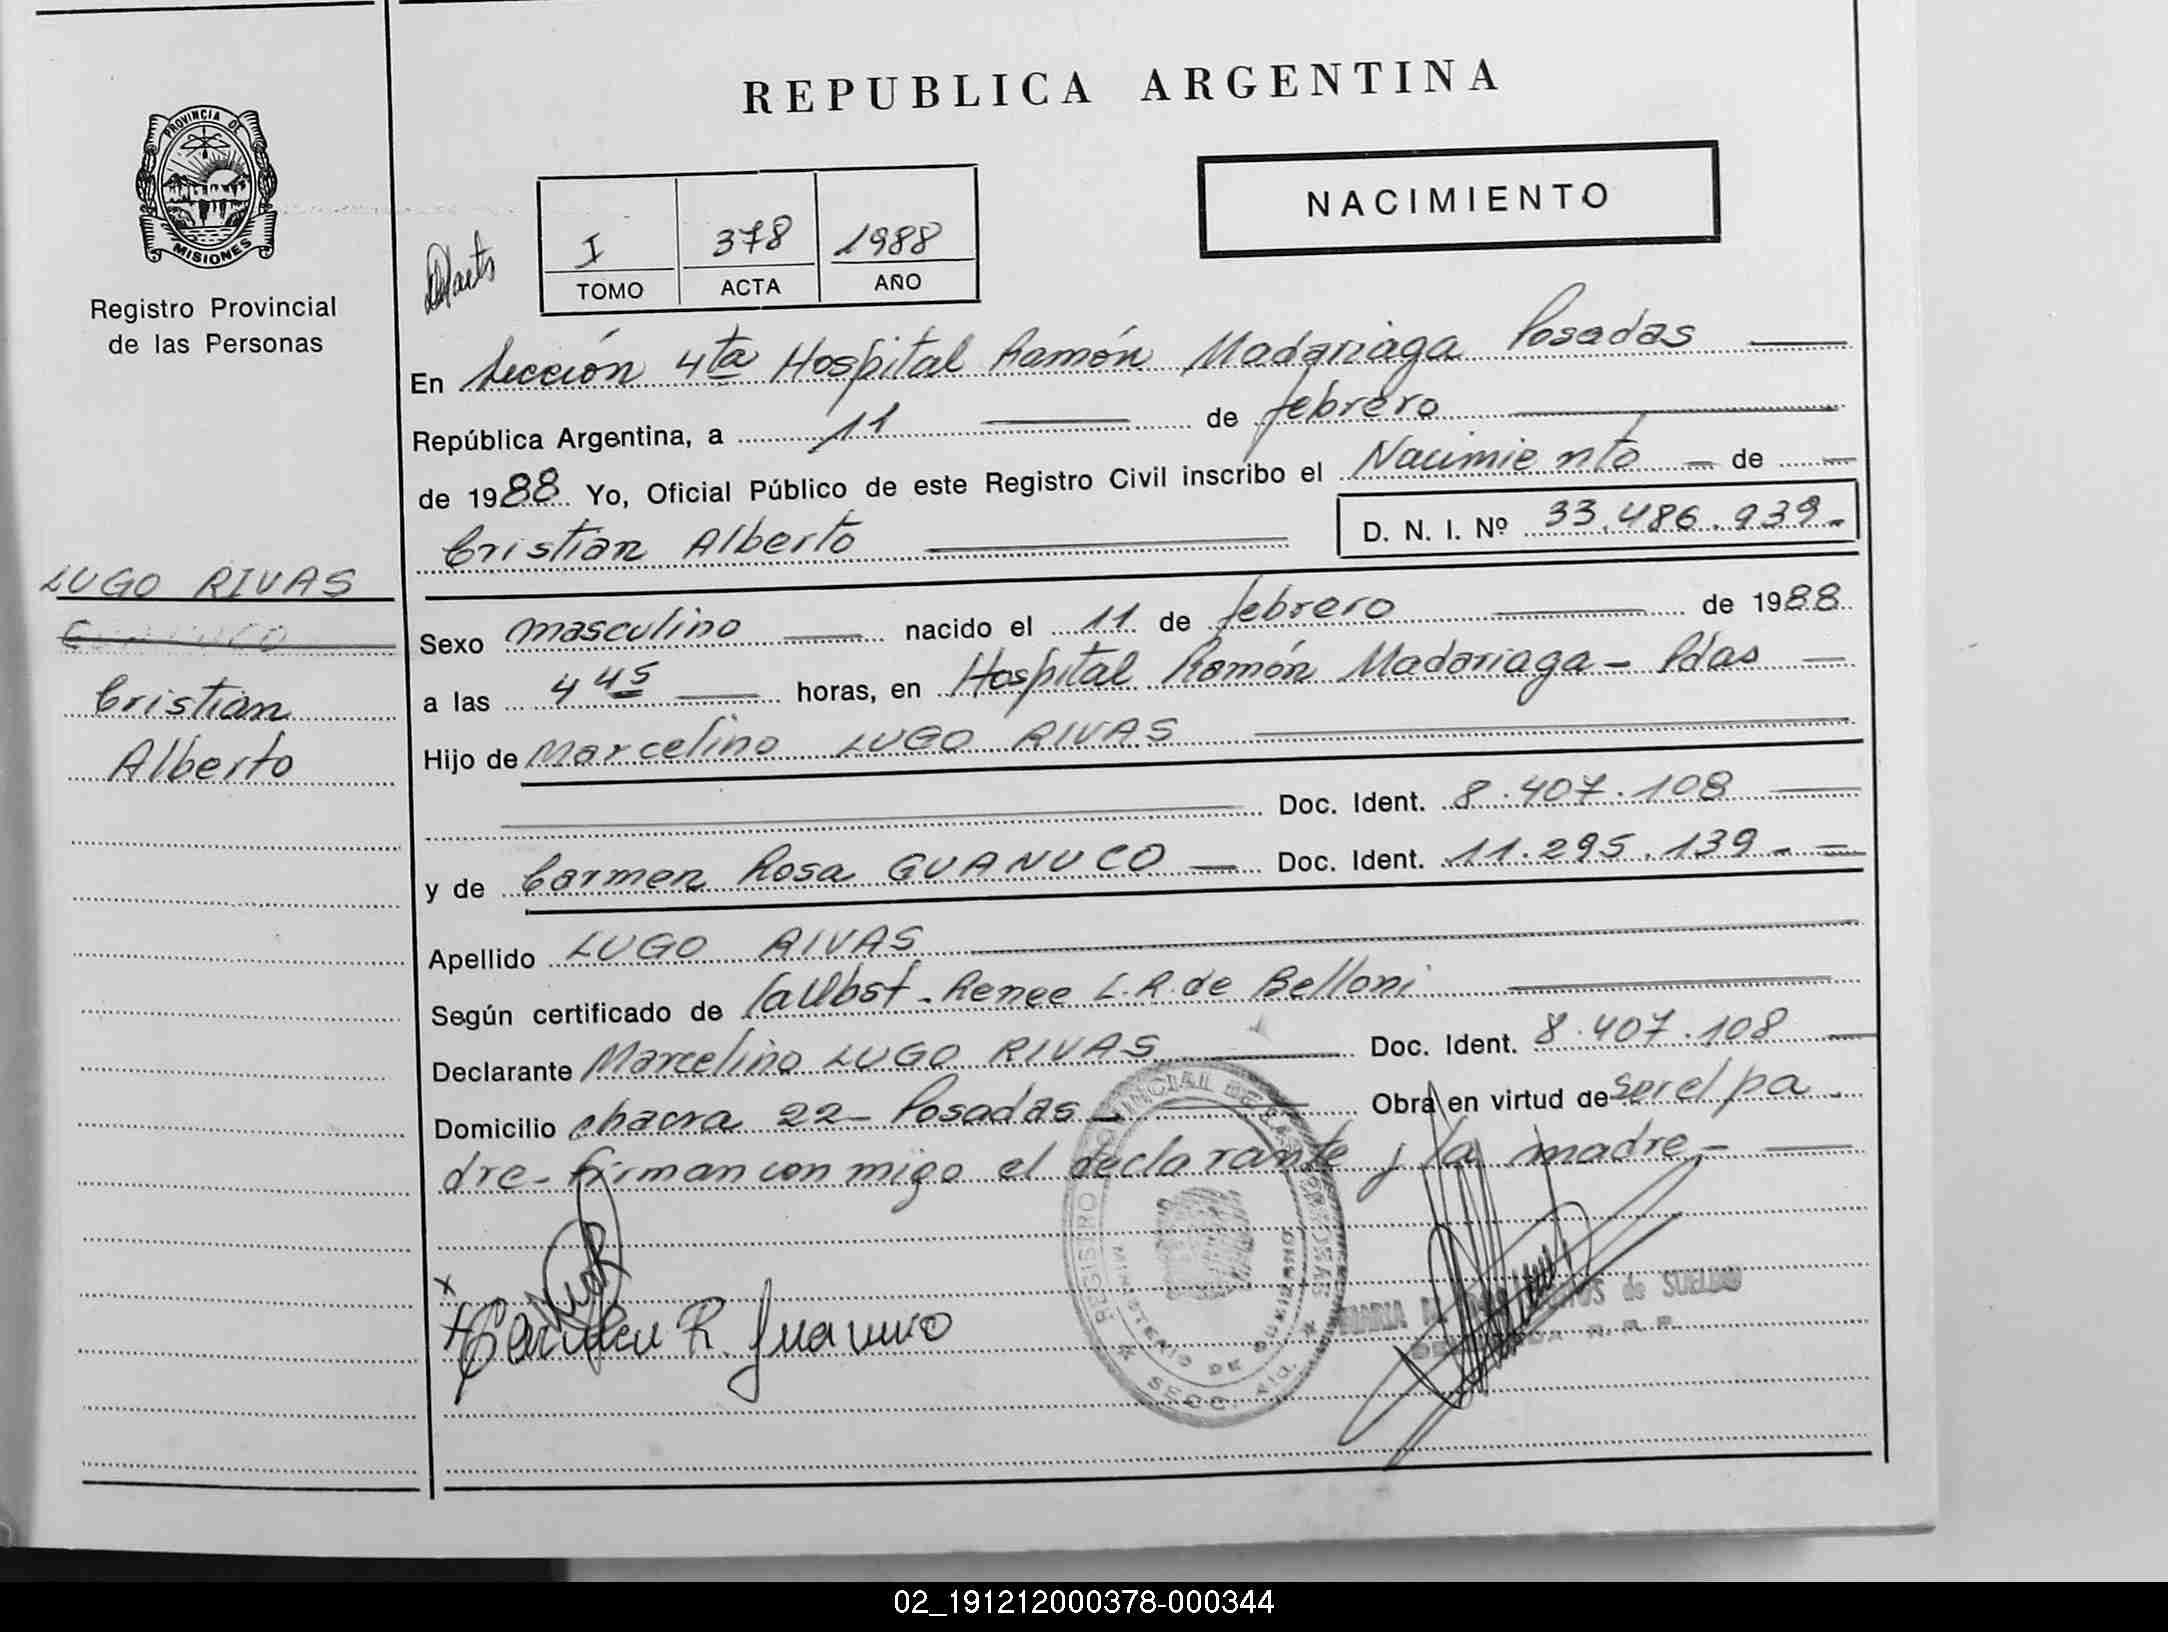 REPUBLICA ARGENTINA
PROVINCIA DE
MISIONES
Registro Provincial
de las Personas
I 378 1988
TOMO ACTA AÑO
NACIMIENTO
En Sección 4ta Hospital Ramón Madariaga Posadas
República Argentina, a 11 de febrero
de 1988 Yo, Oficial Público de este Registro Civil inscribo el Nacimiento de
Cristian Alberto D. N. I. Nº 33.486.939.-
LUGO RIVAS
GUANUCO
Cristian
Alberto
Sexo masculino nacido el 11 de febrero de 1988
a las 4 45 horas, en Hospital Ramón Madariaga - Pdas
Hijo de Marcelino LUGO RIVAS
Doc. Ident. 8.407.108
y de Carmen Rosa GUANUCO Doc. Ident. 11.295.139.-
Apellido LUGO RIVAS
Según certificado de la Obst. Renee L.R. de Belloni
Declarante Marcelino LUGO RIVAS Doc. Ident. 8.407.108
Domicilio chacra 22 - Posadas Obra en virtud de ser el pa
dre - firman con migo el declarante y la madre -
REGISTRO PROVINCIAL DE LAS PERSONAS
MINISTERIO DE GOBIERNO
Carmen R. Guanuco
de SUELDO
02_191212000378-000344